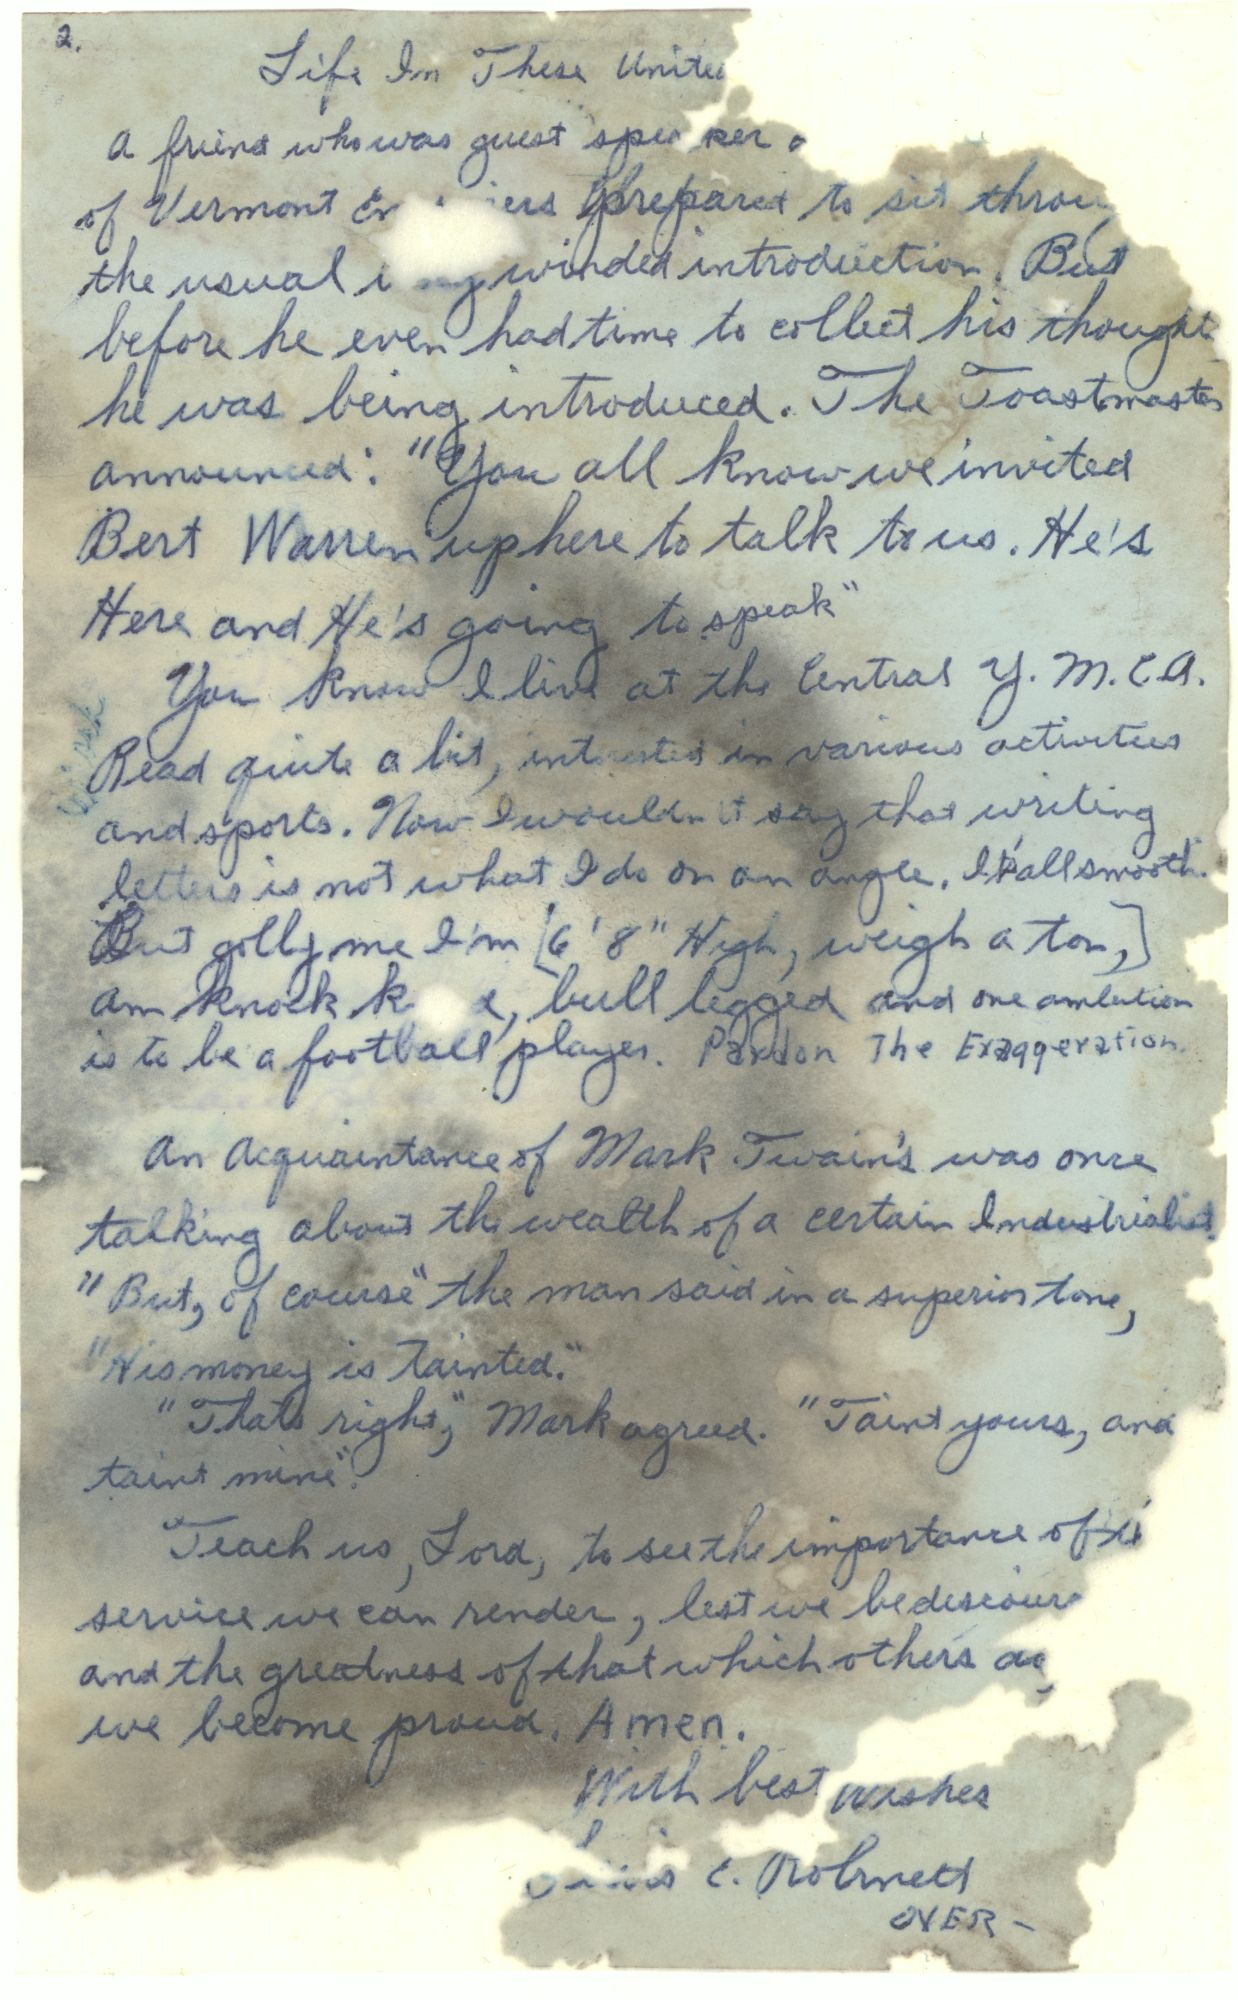 2.
Life In These United
A friend who was guest speaker
of Vermont prepared to sit throug
the usual winded introduction. But
before he even had time to collect his thought
he was being introduced. The Toastmaster
announced: "You all know we invited
Bert Warren up here to talk to us. He's
Here and He's going to speak"
You know I live at the Central Y.M.C.A.
Read quite a bit, interested in various activities
and sports. Now I wouldn't say that writing
letters is not what I do on an angle. It's all smooth.
But golly me I'm [6'8" High, weigh a ton,]
am knock bull legged and one ambition
is to be a football player. Pardon The Exaggeration.
An Acquaintance of Mark Twain's was once
talking about the wealth of a certain Industrialist.
"But, of course" the man said in a superior tone,
"His money is Tainted."
"Thats right," Mark agreed. "Taint yours, and
taint mine".
Teach us, Lord, to see the importance of
service we can render, lest we be
and the greatness of that which others
we become proud. Amen.
With best wishes
C.
OVER-